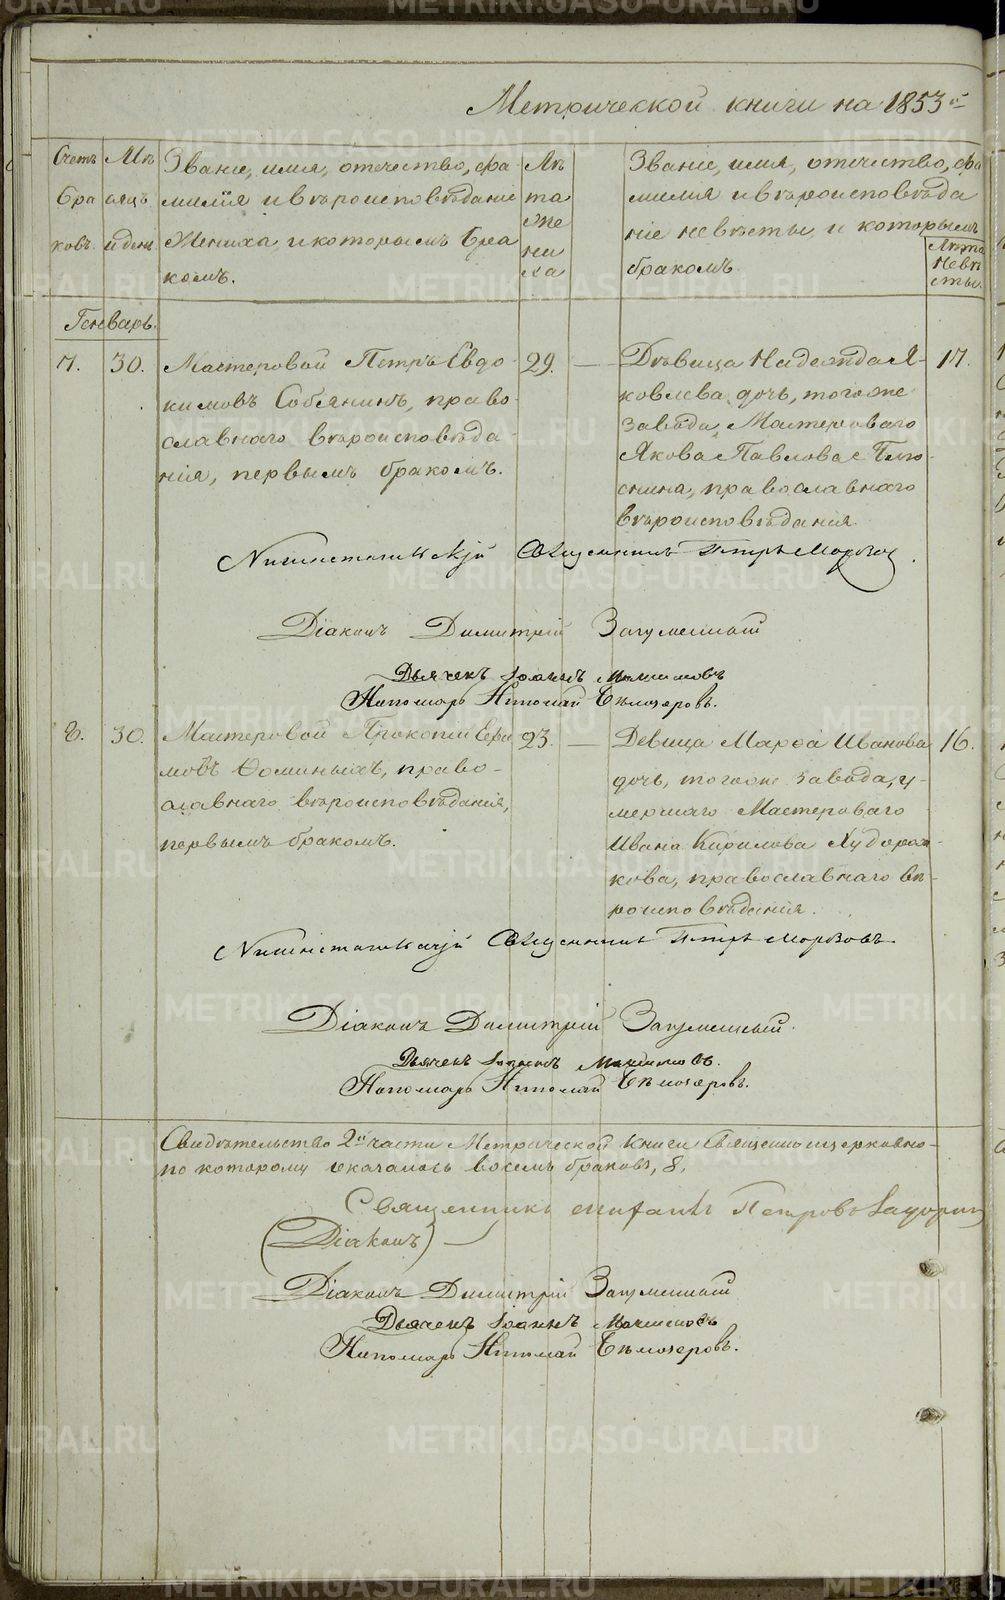 Метрической книги на 1853й
Счетъ браковъ.
Мѣсяцъ и день
Званіе, имя, отчество, фамилія и вѣроисповѣданіе Жениха, и которымъ бракомъ.
Лѣта жениха
Званіе, имя, отчество, фамилия и вѣроисповѣданіе невѣсты и которымъ бракомъ.
Лѣта Невѣсты.
Генварь.
7. 30. Мастеровой Петръ Евдо-
кимовъ Собянинъ, право-
славнаго вѣроисповѣда-
нія, первымъ бракомъ.
29. —
Дѣвица Надежда Я-
ковлева дочь, тогоже
завода, Мастероваго
Якова Павлова
православнаго
вѣроисповѣдания
17.
Священникъ Петръ Морозов.
Діаконъ Димитрій Загуменный
Дьячекъ Іоаннъ
Пономарь Николай Бѣлозеровъ.
8. 30. Мастеровой Прокопий Ефи
мовъ Ѳоминыхъ, право-
славнаго вѣроисповѣдания,
первымъ бракомъ.
23. —
Девица Марѳа Иванова
дочь, тогоже завода, у-
мершаго Мастероваго
Ивана Кирилова Худорож-
кова, православнаго вѣ-
роисповѣдания.
16.
Священникъ Петръ Морозовъ.
Діаконъ Димитрій Загуменный.
Дьячекъ Іоаннъ
Пономарь Николай Бѣлозеровъ.
Свидѣтельство 2й части Метрической книги
по которому оказалось восемь браковъ, 8.
Священникъ Петровъ
(Діаконъ)
Діаконъ Димитрій Загуменный
Дьячекъ Іоаннъ
Пономарь Николай Бѣлозеровъ.
METRIKI.GASO-URAL.RU